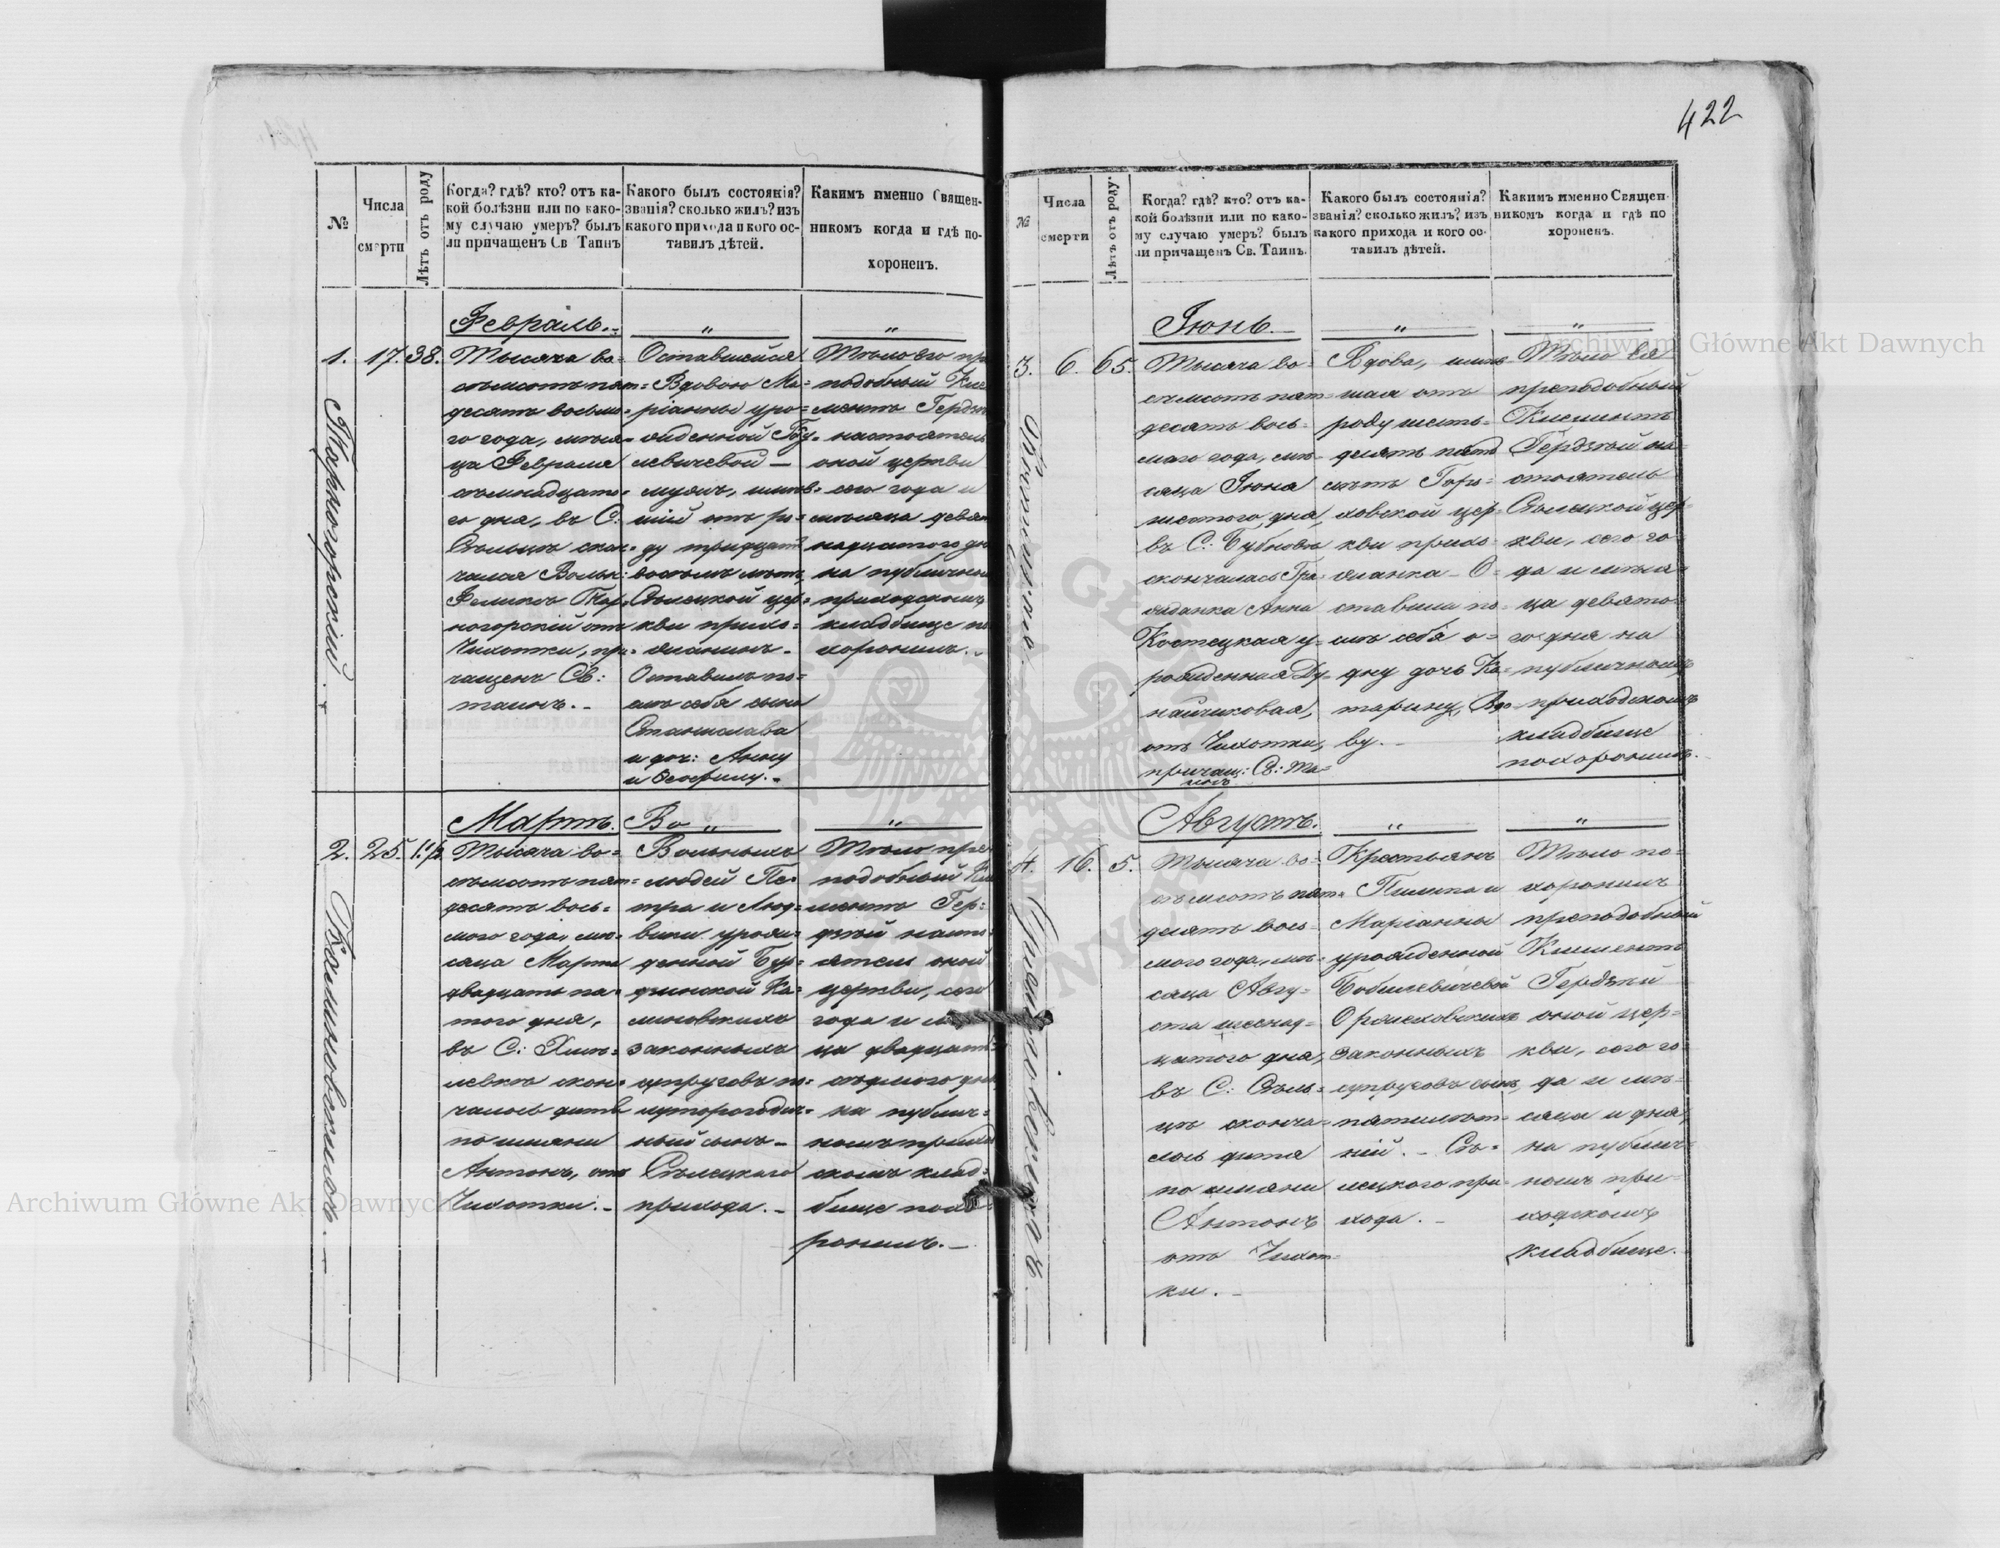 422
№
Числа
смерти
Лѣтъ отъ роду
Когда? гдѣ? кто? отъ ка-
кой болѣзни или по како-
му случаю умеръ? былъ
ли причащенъ Св Таинъ
Какого былъ состоянія?
званія? сколько жилъ? изъ
какого прихода и кого ос-
тавилъ дѣтей.
Какимъ именно Священ-
никомъ когда и гдѣ по-
хороненъ.
Февраль.
1. 17. 38.
Тарногорскій.
Тысяча во-
съмсотъ пят=
десятъ восьма-
го года, мѣся-
ца Февраля
съмнадцато-
го дня, въ С.
Съльцѣ скон-
чался Вольн:
Феликсъ Тар-
ногорскій отъ
Чихотки, при-
чащенъ Св:
таинъ.
Оставшейся
Вдовою Ма-
ріанны уро-
жденной
левичевой —
мужъ, имѣв-
шій отъ ро-
ду тридцать
восъмъ лѣтъ,
Съльцкой цер-
кви прихо-
жанинъ.
Оставилъ по-
слѣ себя сына
Станислава
и доч: Анну
и Юзефину.
Тѣло его пре
подобный Кли
ментъ Герд
настоятель
оной церкви
сего года и
мѣсяца девят
надцатого дня
на публичном
приходскомъ
кладбище по
хоронилъ.
Мартъ. Во
2. 25. 1 1/2
Калиновскихъ.
Тысяча во-
съмсотъ пят=
десятъ вось-
мого года, мѣ-
сяца Марта
двадцать пя-
того дня,
въ С.:
левкѣ скон-
чалось дитя
по имяни
Антонъ, отъ
Чихотки.
Вольныхъ
людей Пе-
тра и Люд-
вики урож-
денной Бур-
дзинской Ка-
линовскихъ
законныхъ
супруговъ по-
луторогодич-
ный сынъ —
Съльцкаго
прихода.
Тѣло пре
подобный Кли
ментъ Гер-
дзій насто
ятель оной
церкви, сего
года и мѣся
ца двадцать
съдмого дня
на публич-
номъ приход
скомъ клад-
бище похо
ронилъ.
№
Числа
смерти
Лѣтъ отъ роду.
Когда? гдѣ? кто? отъ ка-
кой болѣзни или по како-
му случаю умеръ? былъ
ли причащенъ Св. Таинъ.
Какого былъ состоянія?
званія? сколько жилъ? изъ
какого прихода и кого ос-
тавилъ дѣтей.
Какимъ именно Священ-
никомъ когда и гдѣ по
хороненъ.
Іюнь.
3. 6. 65.
Тысяча во-
съмсотъ пят=
десятъ вось-
маго года, мѣ-
сяца Іюня
шестого дня,
въ С: Бубновѣ
скончалась Гра-
жданка Анна
Костецкая у-
рожденная Ду-
найчиковая,
отъ Чихотки,
причащ: Св: Та-
инъ.
Вдова, имѣв-
шая отъ
роду шесть-
десятъ пять
лѣтъ Горо-
ховской цер-
кви прихо-
жанка — О-
ставила по-
слѣ себя о-
дну дочь Ка-
тарину, Вдо-
ву.
Тѣло ея
преподобный
Климентъ
Гердзій на-
стоятель
Съльцкой цер-
кви, сего го-
да и мѣся-
ца девято-
го дня на
публичномъ
приходскомъ
кладбище
похоронилъ.
Августъ.
4. 16. 5.
Тысяча во-
съмсотъ пят=
десятъ вось-
мого года, мѣ-
сяца Авгу-
ста шеснад-
цатого дня,
въ С: Съль-
цѣ сконча-
лось дитя
по имяни
Антонъ
отъ Чихот-
ки.
Крестьянъ
Филипа и
Маріанны
урожденной
Бобилевичевой
Оржеховскихъ
законныхъ
супруговъ сынъ,
пятилѣт-
ній. — Съ-
лецкого при-
хода.
Тѣло по-
хоронилъ
преподобный
Климентъ
Гердзій
оной цер-
кви, сего го-
да и мѣ-
сяца и дня,
на публич-
номъ при-
ходскомъ
кладбище.
Archiwum Główne Akt Dawnych
Archiwum Główne Akt Dawnych